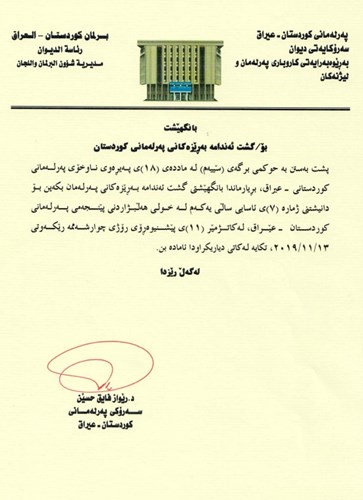 پەرلەمانی کوردستان - عیراق
سەرۆکایەتی دیوان
بەڕێوەبەرایەتی کاروباری پەرلەمان و
لیژنەکان
برلمان كوردستان - العراق
رئاسة الديوان
مديرية شؤون البرلمان واللجان
بانگهێشت
بۆ/ گشت ئەندامە بەڕێزەکانی پەرلەمانی کوردستان
پشت بەستن بە حوکمی بڕگەی (سێیەم) لە ماددەی (١٨)ی پەیڕەوی ناوخۆی پەرلەمانی
کوردستانی - عیراق، بڕیارماندا بانگهێشتی گشت ئەندامە بەڕێزەکانی پەرلەمان بکەین بۆ
دانیشتنی ژمارە (٧)ی ئاسایی ساڵی یەکەم لە خولی هەڵبژاردنی پێنجەمی پەرلەمانی
کوردستان - عێراق، لەکاتژمێر (١١)ی پێشنیوەڕۆی ڕۆژی چوارشەممە ڕێکەوتی
٢٠١٩/١١/١٣، تکایە لەکاتی دیاریکراودا ئامادە بن.
لەگەڵ ڕێزدا
د.ڕێواز فایق حسێن
سەرۆکی پەرلەمانی
کوردستان - عیراق